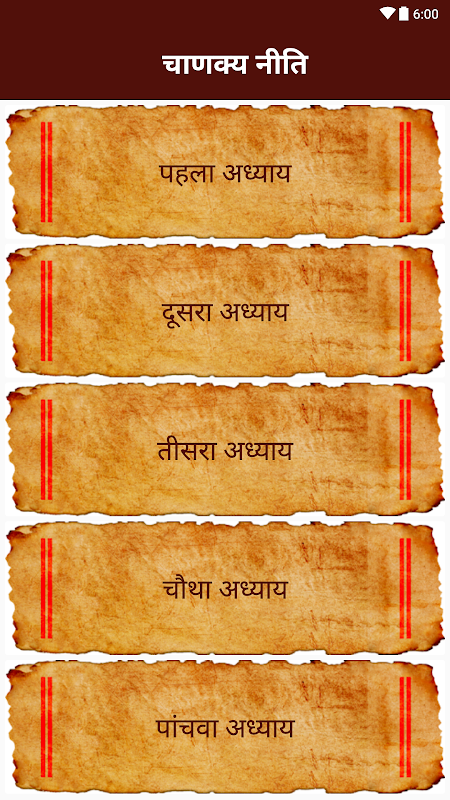 6:00
चाणक्य नीति
पहला अध्याय
दूसरा अध्याय
तीसरा अध्याय
चौथा अध्याय
पांचवा अध्याय